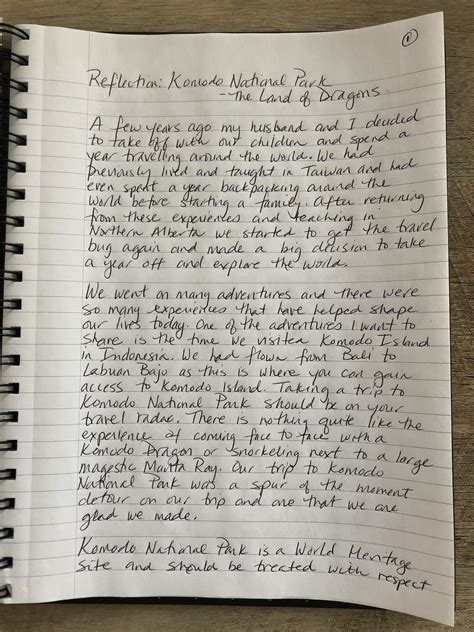 1
Reflection: Komodo National Park
- The Land of Dragons
A few years ago my husband and I decided
to take off with our children and spend a
year travelling around the world. We had
previously lived and taught in Taiwan and had
even spent a year backpacking around the
world before starting a family. After returning
from these experiences and teaching in
Northern Alberta we started to get the travel
bug again and made a big decision to take
a year off and explore the world.
We went on many adventures and there were
so many experiences that have helped shape
our lives today. One of the adventures I want to
share is the time we visited Komodo Island
in Indonesia. We had flown from Bali to
Labuan Bajo as this is where you can gain
access to Komodo Island. Taking a trip to
Komodo National Park should be on your
travel radar. There is nothing quite like the
experience of coming face to face with a
Komodo Dragon or snorkeling next to a large
magestic Manta Ray. Our trip to Komodo
National Park was a spur of the moment
detour on our trip and one that we are
glad we made.
Komodo National Park is a World Heritage
site and should be treated with respect